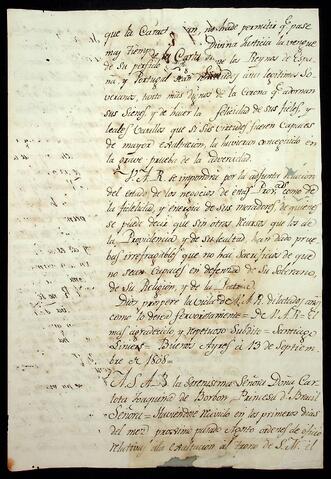 que la Caract    on, no hade permitir q.e pase
muy tiempo        Divina Justicia la vengue
de su perfidia        que los Reynos de Espa-
ña, y Portugal                y a sus legitimos So-
veranos, tanto mas dignos de la Corona q.e adornan
sus Sienes y de hacer la felicidad de sus fieles, y
leales Vasallos que si sus virtudes fuesen capaces
de mayor exaltacion, la huvieran conseguido en
la grave prueba de la adversidad.
V.A.R. se impondrá por la adjunta relacion
del estado de los negocios de estas Prov.as como de
la fidelidad, y energia de sus moradores, de quienes
se puede decir que sin otros recursos que los de
la Providencia y de su lealtad, han dado prue
bas irrefragables que no hay Sacrificios de que
no sean capaces en defensa de Su Soberano,
de Su Religion, y de la Patria.
Dios prospere la vida de V.A.R. dilatados años
como lo deseo fervorosamente = De V.A.R = El
mas agradecido, y respetuoso Subdito = Santiago
Liniers = Buenos Ayres a 13 de Septiem-
bre de 1808 =
A S.A.R. la Serenisima Señora Doña Car-
lota Joaquina de Borbon, Princesa del Brasil
Señora = Haviendose recivido en los primeros dias
del mes proximo pasado Agosto ordenes de oficio
relativas a la exaltacion al trono de S.M. El